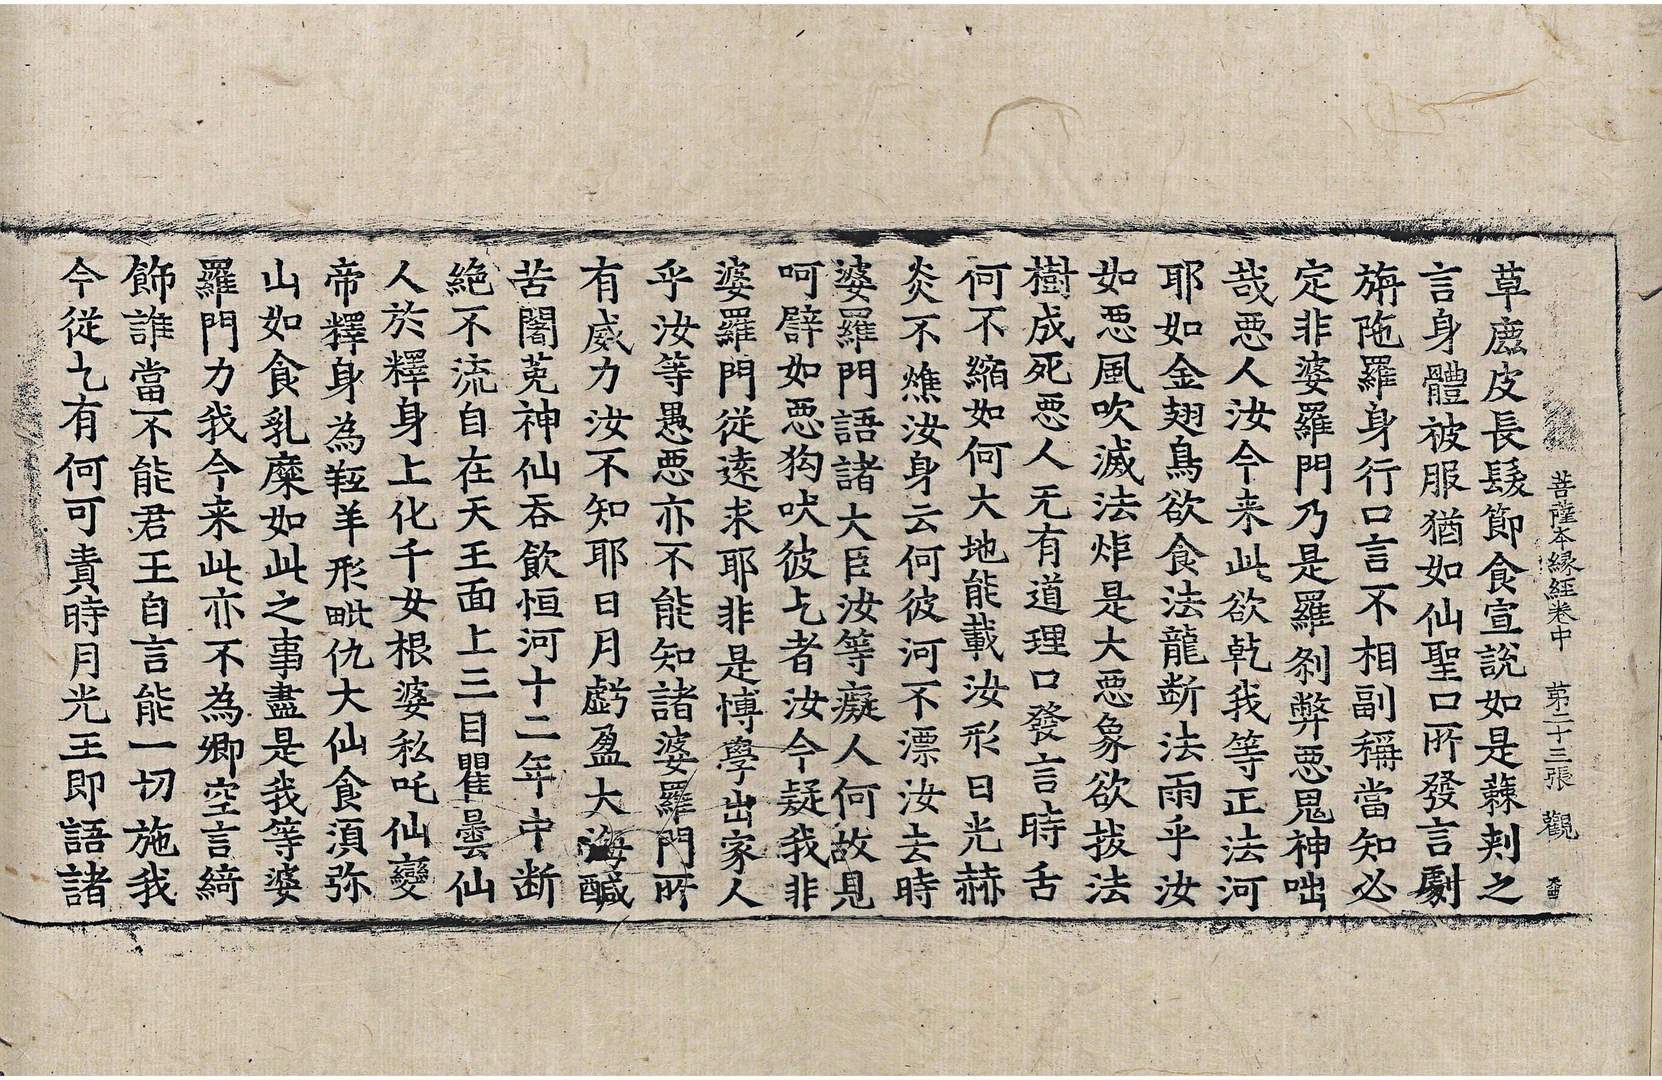 菩薩本縁經卷中 苐二十三張 觀
草鹿皮長髮節食宣說如是蕀刾之
言身體被服猶如仙聖口所發言劇
旃陁羅身行口言不相副稱當知必
定非婆羅門乃是羅剎弊惡鬼神咄
哉惡人汝今来此欲乹我等正法河
耶如金翅鳥欲食法龍断法雨乎汝
如惡風吹滅法炬是大惡象欲拔法
樹成死惡人无有道理口發言時舌
何不縮如何大地能載汝形日光赫
炎不燋汝身云何彼河不漂汝去時
婆羅門語諸大臣汝等癡人何故見
呵譬如惡狗吠彼乞者汝今疑我非
婆羅門從遠来耶非是愽學出家人
乎汝等愚惡亦不能知諸婆羅門所
有威力汝不知耶日月虧盈大海鹹
苦闍莵神仙吞飲恒河十二年中断
絶不流自在天王面上三目瞿曇仙
人於釋身上化千女根婆私吒仙變
帝釋身為羝羊形毗仇大仙食湏弥
山如食乳糜如此之事盡是我等婆
羅門力我今来此亦不為卿空言綺
飾誰當不能君王自言能一切施我
今從乞有何可責時月光王即語諸